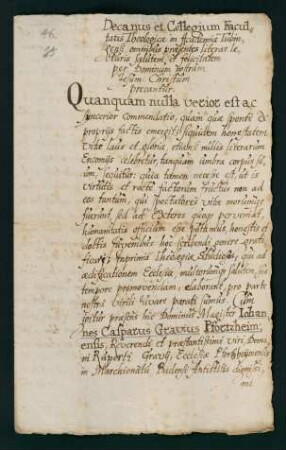 Decanus et Collegium Facul-
tatis Theologicæ in
omnibus præsentes literas le-
cturis salutem, et felicitatem
per Dominum nostrum
Jesum Christum
precantur.
Quanquam nulla verior est ac
sincerior commendatio, quam quæ sponte de
proprijs factis emergit: siquidem honestatem
vitæ laus et gloria etiamsi nullis literarum
Encomijs celebretur, tanquam umbra corpus su-
um, sequitur: quia tamen necesse est, ut is
virtutis et recte factorum fructus non ad
eos tantum, qui spectatores vitæ
fuerunt, sed ad Exteros quoque perveniat,
humanitatis officium esse putamus, honestis et
doctis Juvenibus hoc scribendi genere grati-
ficari: inprimis Theologiæ Studiosis, qui ad
ædificationem Ecclesiæ, multorumque salutem, suo
tempore promovendam, elaborant, pro parte
nostra virili juvare parati sumus. Cum
igitur præsens hic Dominus Magister Johan-
nes Casparus Gravius Pfortzheim-
ensis, Reverendi et præstantissimi viri, Domi-
ni Ruperti Gravij, Ecclesiæ Pfortzheimensis
in Marchionatu Badensi Antistitis digniss.